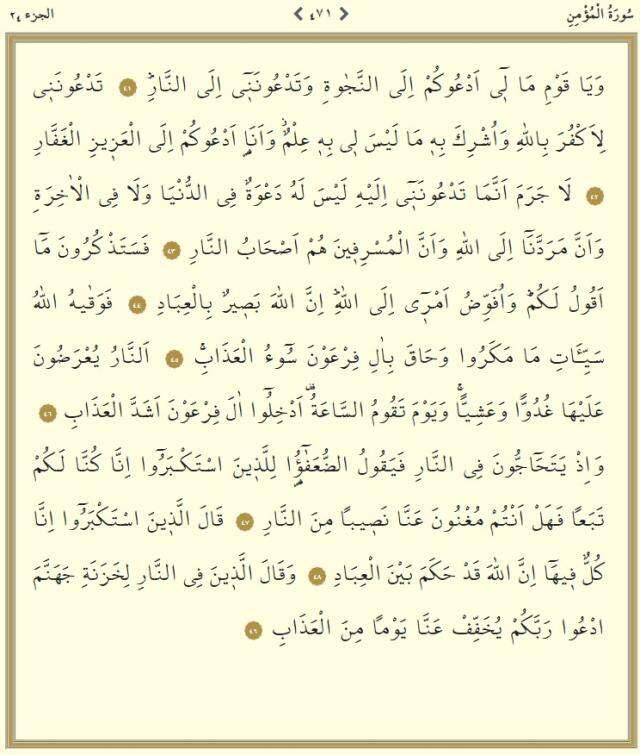 سُورَةُ الْمُؤْمِنِ
❮ ٤٧١ ❯
الجزء ٢٤
وَيَا قَوْمِ مَا لٖٓي اَدْعُوكُمْ اِلَى النَّجٰوةِ وَتَدْعُونَنٖٓي اِلَى النَّارِؕ ﴿٤١﴾ تَدْعُونَنٖي
لِاَكْفُرَ بِاللّٰهِ وَاُشْرِكَ بِهٖ مَا لَيْسَ لٖي بِهٖ عِلْمٌؗ وَاَنَا۬ اَدْعُوكُمْ اِلَى الْعَزٖيزِ الْغَفَّارِ
﴿٤٢﴾ لَا جَرَمَ اَنَّمَا تَدْعُونَنٖٓي اِلَيْهِ لَيْسَ لَهُ دَعْوَةٌ فِي الدُّنْيَا وَلَا فِي الْاٰخِرَةِ
وَاَنَّ مَرَدَّنَٓا اِلَى اللّٰهِ وَاَنَّ الْمُسْرِفٖينَ هُمْ اَصْحَابُ النَّارِ ﴿٤٣﴾ فَسَتَذْكُرُونَ مَٓا
اَقُولُ لَكُمْؕ وَاُفَوِّضُ اَمْرٖٓي اِلَى اللّٰهِؕ اِنَّ اللّٰهَ بَصٖيرٌ بِالْعِبَادِ ﴿٤٤﴾ فَوَقٰيهُ اللّٰهُ
سَيِّـَٔاتِ مَا مَكَرُوا وَحَاقَ بِاٰلِ فِرْعَوْنَ سُٓوءُ الْعَذَابِۚ ﴿٤٥﴾ اَلنَّارُ يُعْرَضُونَ
عَلَيْهَا غُدُوًّا وَعَشِيًّاۚ وَيَوْمَ تَقُومُ السَّاعَةُ۠ اَدْخِلُٓوا اٰلَ فِرْعَوْنَ اَشَدَّ الْعَذَابِ ﴿٤٦﴾
وَاِذْ يَتَحَٓاجُّونَ فِي النَّارِ فَيَقُولُ الضُّعَفٰٓؤُ۬ا لِلَّذٖينَ اسْتَكْبَرُٓوا اِنَّا كُنَّا لَكُمْ
تَبَعًا فَهَلْ اَنْتُمْ مُغْنُونَ عَنَّا نَصٖيبًا مِنَ النَّارِ ﴿٤٧﴾ قَالَ الَّذٖينَ اسْتَكْبَرُٓوا اِنَّا
كُلٌّ فٖيهَٓا اِنَّ اللّٰهَ قَدْ حَكَمَ بَيْنَ الْعِبَادِ ﴿٤٨﴾ وَقَالَ الَّذٖينَ فِي النَّارِ لِخَزَنَةِ جَهَنَّمَ
ادْعُوا رَبَّكُمْ يُخَفِّفْ عَنَّا يَوْمًا مِنَ الْعَذَابِ ﴿٤٩﴾